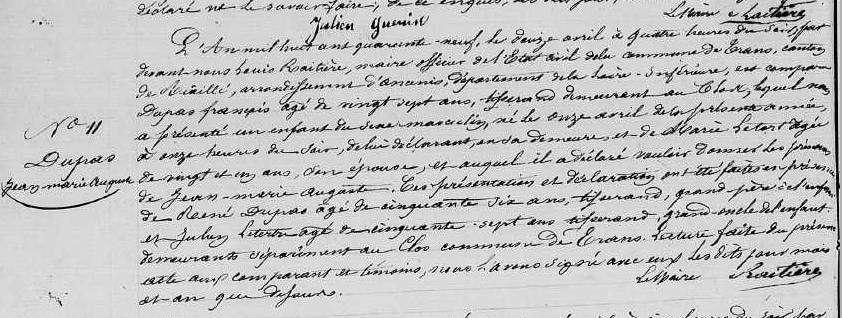 déclaré ne le savoir faire, de ce enquis,
Julien Guerin
Le Maire Raitière
L'An mil huit cent quarante-neuf, le douze avril à quatre heures du soir, par
devant nous Louis Raitière, maire officier de l'Etat civil de la commune de Trans, canton
de Riaillé, arrondissement d'ancenis, département de la Loire-Inférieure, est comparu
Dupas françois agé de vingt sept ans, tisserand demeurant au Clos, lequel nous
a présenté un enfant du sexe masculin, né le onze avril de la présente année,
à onze heures du soir, de lui déclarant, en sa demeure, et de Marie Letort agée
de vingt et un ans, son épouse, et auquel il a déclaré vouloir donner les prénoms
de Jean-marie auguste. Ces présentation et déclaration ont été faites en présence
de René Dupas agé de cinquante six ans, tisserand, grand père de l'enfant
et Julien Letertre agé de cinquante-sept ans tisserand, grand oncle de l'enfant
demeurants séparément au Clos commune de Trans. Lecture faite du présent
acte aux comparant et témoins, nous l'avons signé avec eux les dits jour mois
et an que dessus.
Le Maire Raitière
No 11
Dupas
Jean marie Auguste